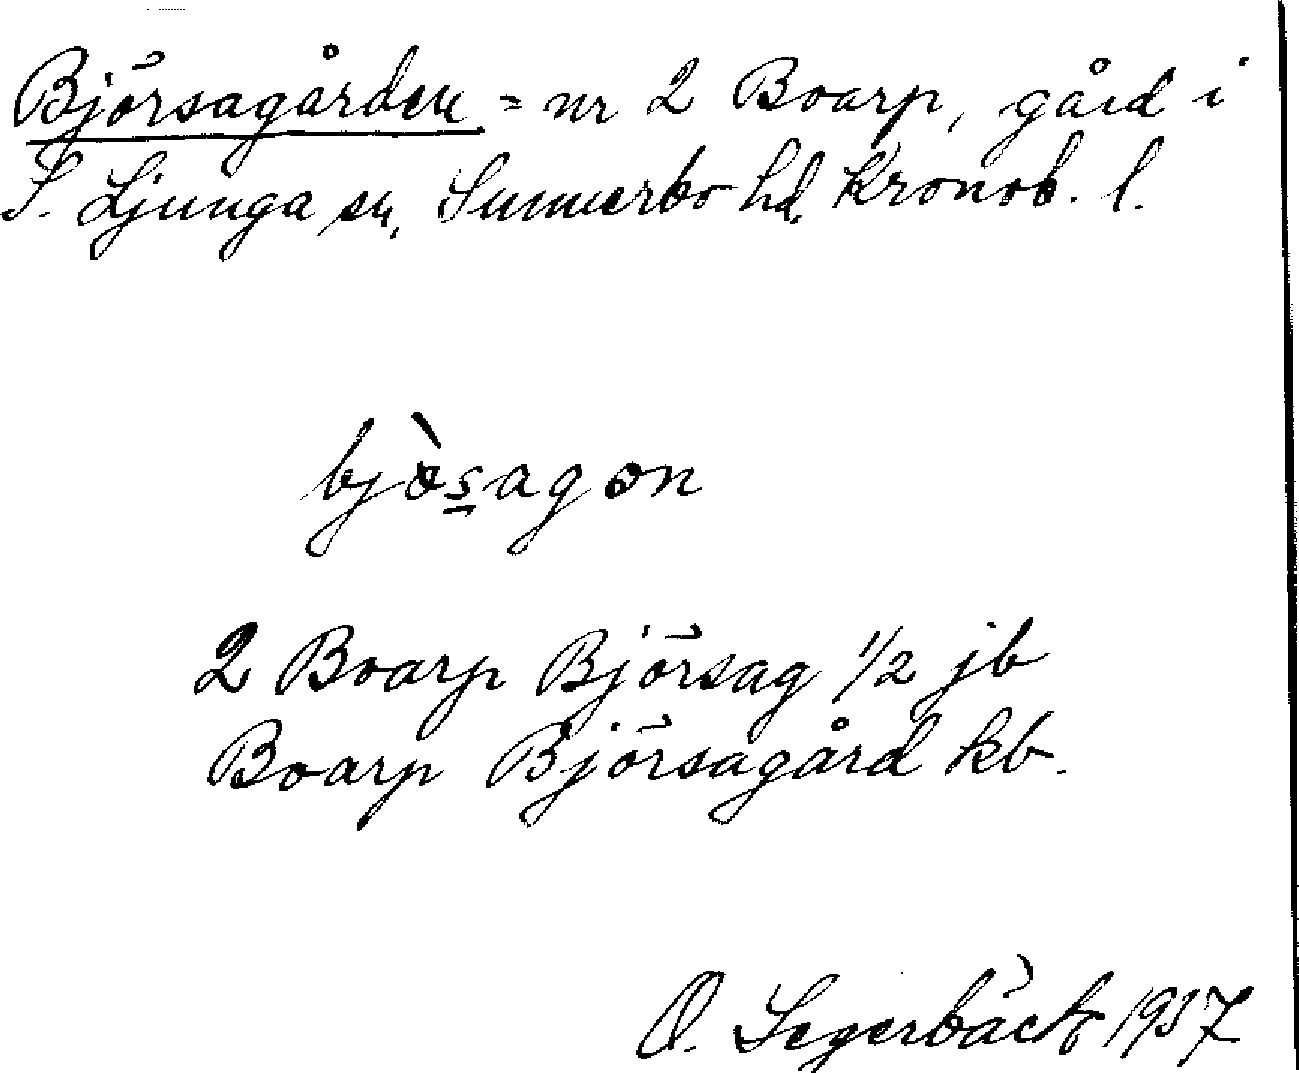 Björsagården = nr 2 Boarp, gård i
S. Ljunga sn, Sunnerbo hd, Kronob. l.
bjòs̠agon
2 Boarp Björsag 1/2 jb
Boarp Björsagård kb.
O. Segerbäck 1937